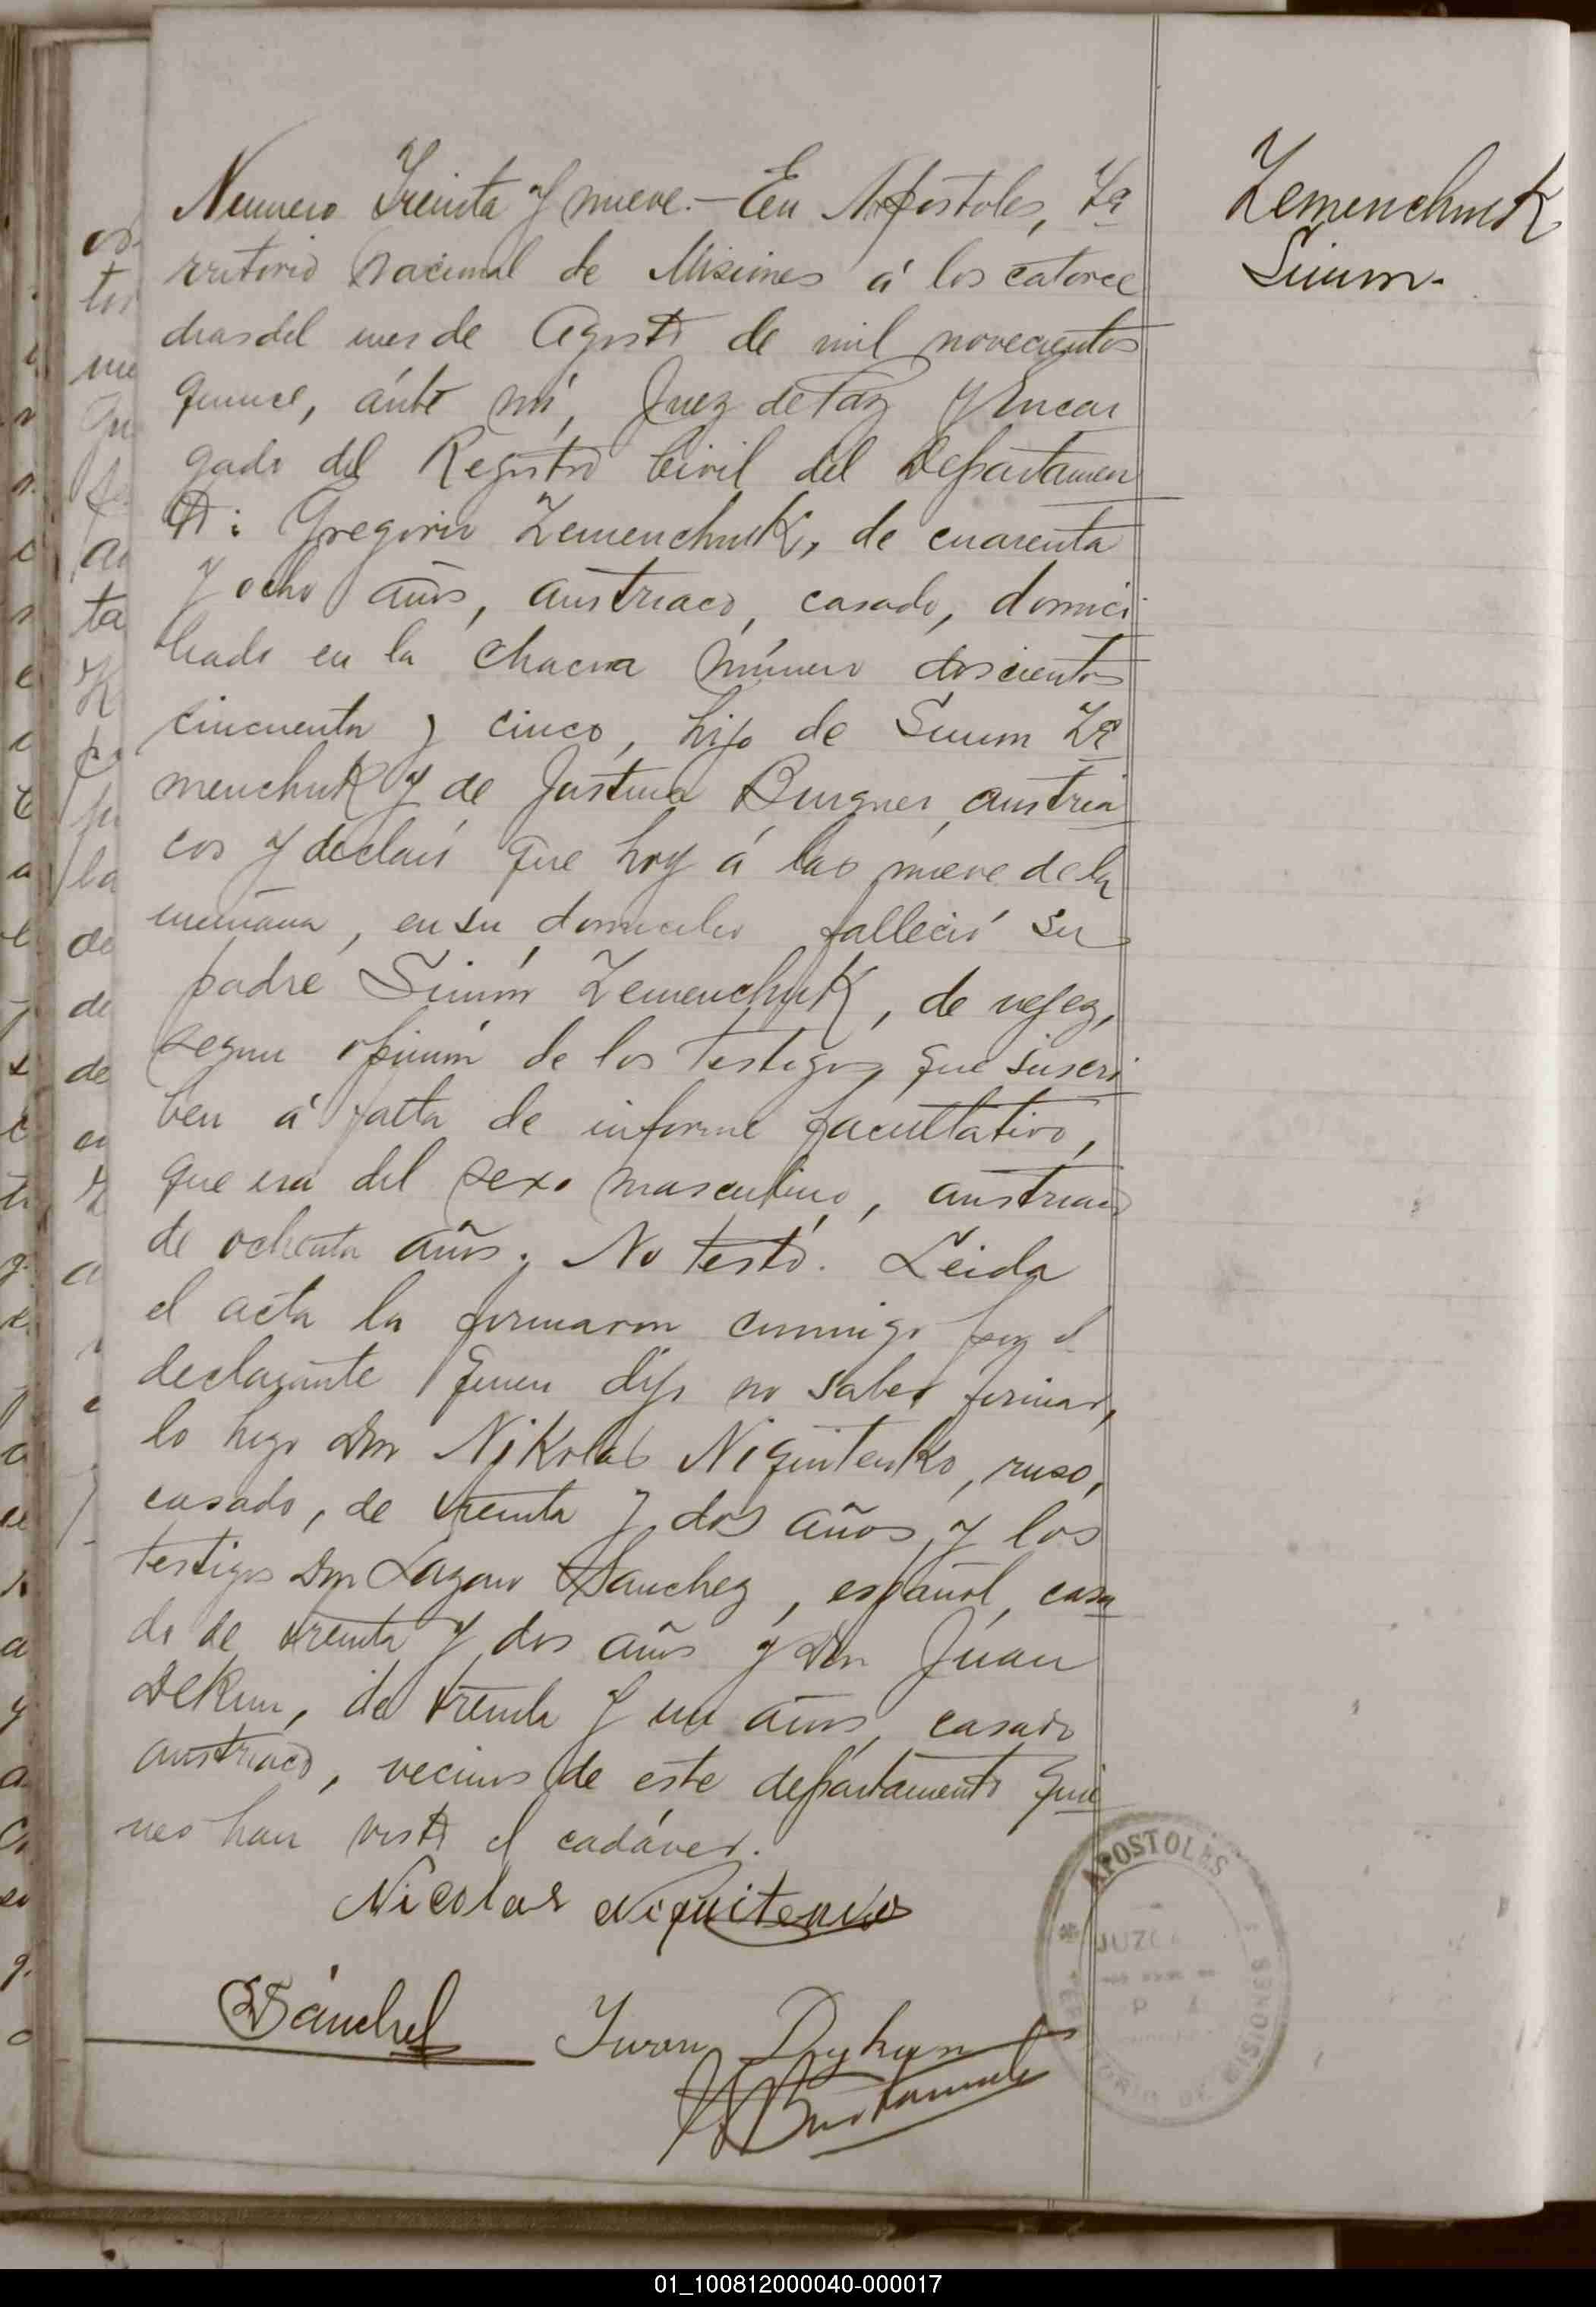 Numero Treinta y nueve.- En Apostoles, Te
rritorio Nacional de Misiones á los catorce
dias del mes de Agosto de mil novecientos
quince, ánte mí, Juez de Paz y Encar
gado del Registro Civil del Departamen
to: Gregorio Zemenchuk, de cuarenta
y ocho años, austriaco, casado, domici
liado en la chacra número doscientos
cincuenta y cinco, hijo de Simon Ze
menchuk y de Justina Burgner, austria
cos y declaró que hoy á las nueve de la
mañana, en su domicilio falleció su
padre Simón Zemenchuk, de vejez,
segun opinión de los testigos que suscri
ben á falta de informe facultativo,
que era del sexo masculino, austriaco
de ochenta años. No testó. Leida
el acta la firmaron conmigo por el
declarante quien dijo no saber firmar,
lo hizo Don Nikolas Niquitenko, ruso,
casado, de treinta y dos años, y los
testigos Don Lazaro Sanchez, español, casa
do de treinta y dos años y Don Juan
Dekun, de treinta y un años, casado
austriaco, vecinos de este departamento quie
nes han visto el cadáver.
Nicolas Niquitenko
Sánchez
Iwan Dykun
Bustamante
Zemenchuk
Simon.
APOSTOLES
JUZG
P
MISIONES
01_100812000040-000017